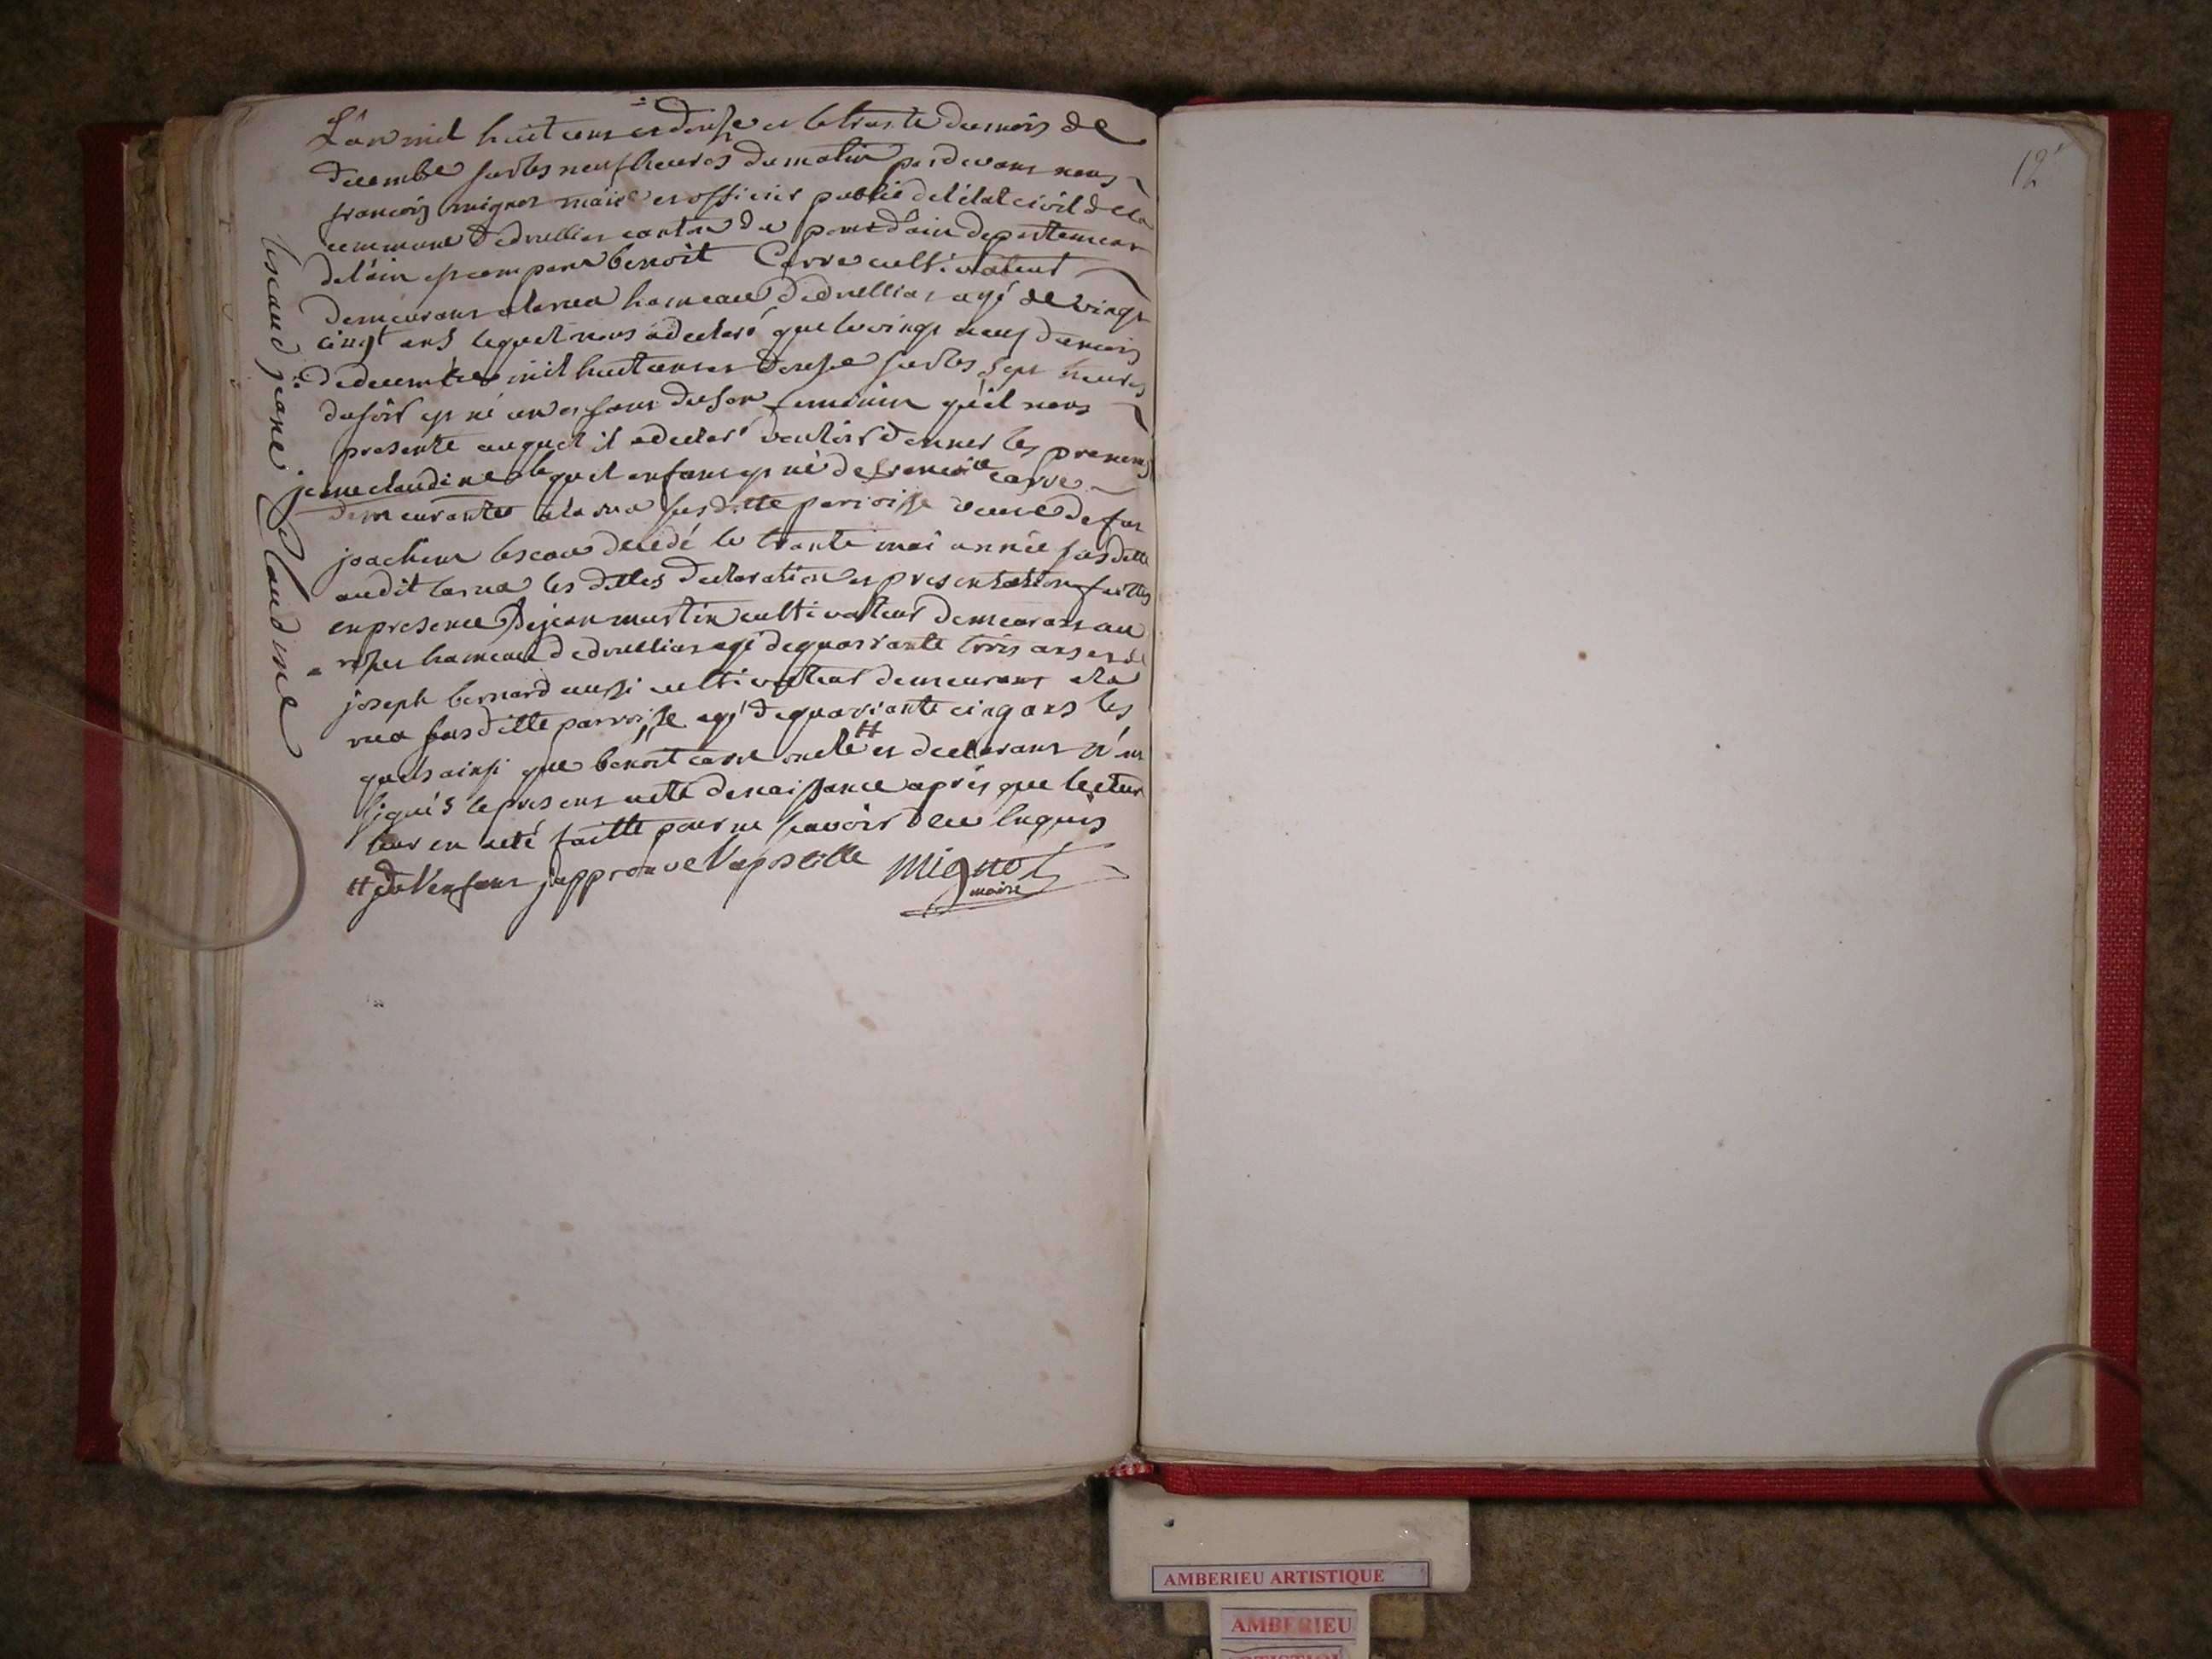 L'an mil huit cens et douse et le trante du mois de
decembre sur les neuf heures du matin par devant nous
françois mignot maire et officier public de l'état civil de la
commune de druillias canton du pont d'ain departement
de l'ain est comparu benoit Carre cultivateur
demeurant a larua hameau de druillias agé de vingt
cinqt ans lequel nous a declaré que le vingt neuf du mois
de decembre mil huit cens et douse sur les sept heures
du soir est né un enfans du sex feminin qu'il nous
presente auquel il a declaré vouloir donner les prenoms
jeane claudine lequel enfans est né de francoise carre
demeurante a la rua susditte paroisse veuve de feu
joachim lescau decédé le trante mai année susditte
audit larua les dittes declaration et presentation faittes
en presence de jean martin cultivateur demeurant au
hameau de druillias agé de quarrante trois ans et de
joseph bernard aussi cultivateur demeurant a la
rua susditte parroisse agé de quarrante cinq ans les
quels ainsi que benoit carre oncle # et declarant n'ont
signés le present acte de naissance après que lecture
leur en a eté faitte pour ne scavoir de ce enquis
# de l'enfant japprouve l'apostille mignot
maire
lescaud jeane Claudine
12
AMBERIEU ARTISTIQUE
AMBERIEU
ARTISTIQUE